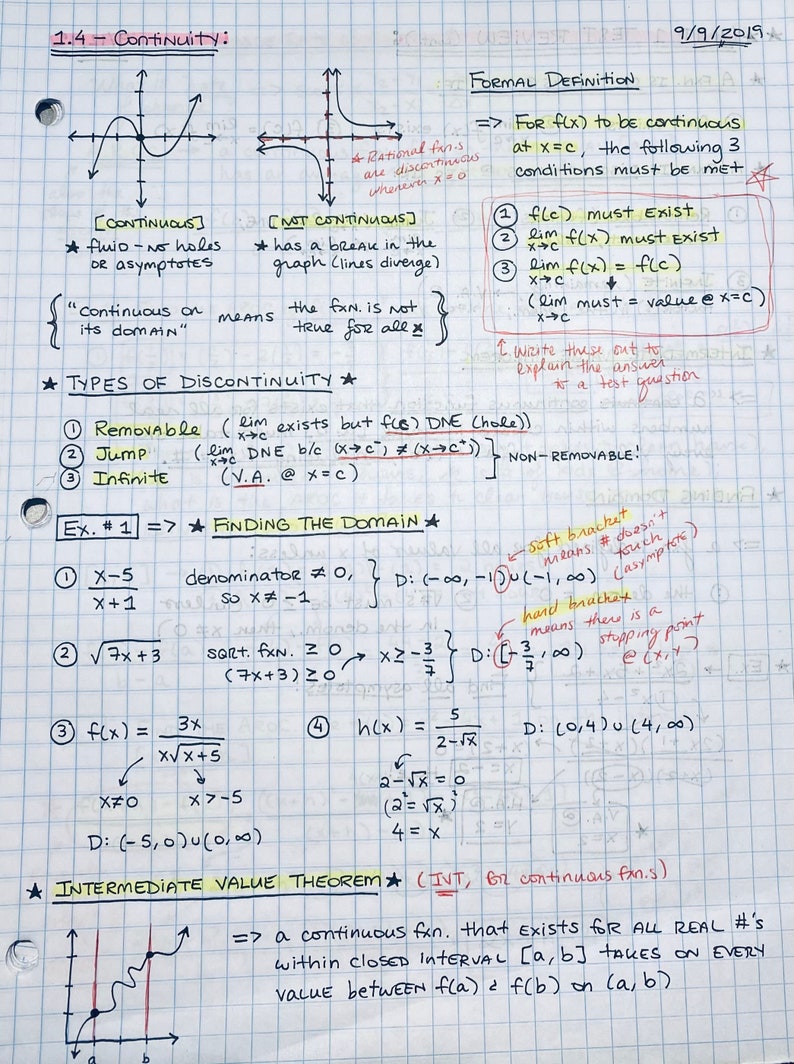 1.4 – Continuity:
9/9/2019
Formal Definition
=> For f(x) to be continuous
at x=c, the following 3
conditions must be met
① f(c) must exist
② lim x→c f(x) must exist
③ lim x→c f(x) = f(c)
(lim x→c must = value @ x=c)
↑ write these out to
explain the answer
to a test question
★ Rational fxn.s
are discontinuous
whenever x=0
[continuous]
★ fluid – no holes
or asymptotes
[not continuous]
★ has a break in the
graph (lines diverge)
{ "continuous on its domain" means the fxn. is not true for all x }
★ Types of Discontinuity ★
① Removable (lim x→c exists but f(c) DNE (hole))
② Jump (lim x→c DNE b/c (x→c⁻) ≠ (x→c⁺))
③ Infinite (V.A. @ x=c)
] Non-Removable!
Ex. #1 => ★ Finding the Domain ★
① x-5 / x+1
denominator ≠ 0,
so x ≠ -1
} D: (-∞, -1)∪(-1, ∞)
soft bracket
means # doesn't
touch
(asymptote)
② √7x+3
sqrt. fxn. ≥ 0
(7x+3) ≥ 0 → x ≥ -3/7
} D: [-3/7, ∞)
hard bracket
means there is a
stopping point
③ f(x) = 3x / x√x+5
x≠0 x>-5
D: (-5,0)∪(0,∞)
④ h(x) = 5 / 2-√x
D: (0,4)∪(4,∞)
2-√x = 0
(2² = √x)²
4 = x
★ Intermediate Value Theorem ★ (IVT, for continuous fxn.s)
=> a continuous fxn. that exists for all real #'s
within closed interval [a,b] takes on every
value between f(a) & f(b) on (a,b)
a b